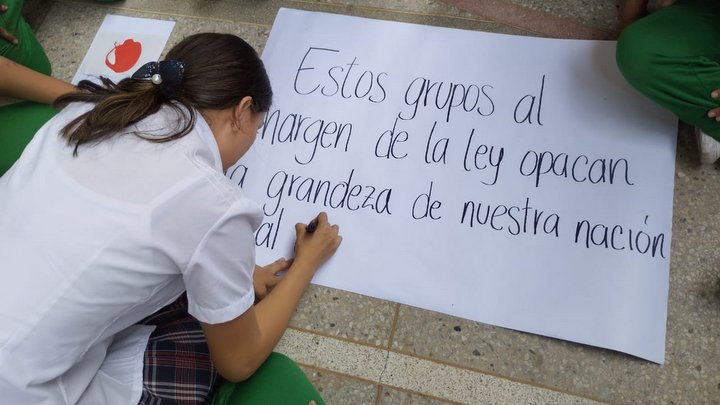 Estos grupos al
margen de la ley opacan
la grandeza de nuestra nación
al